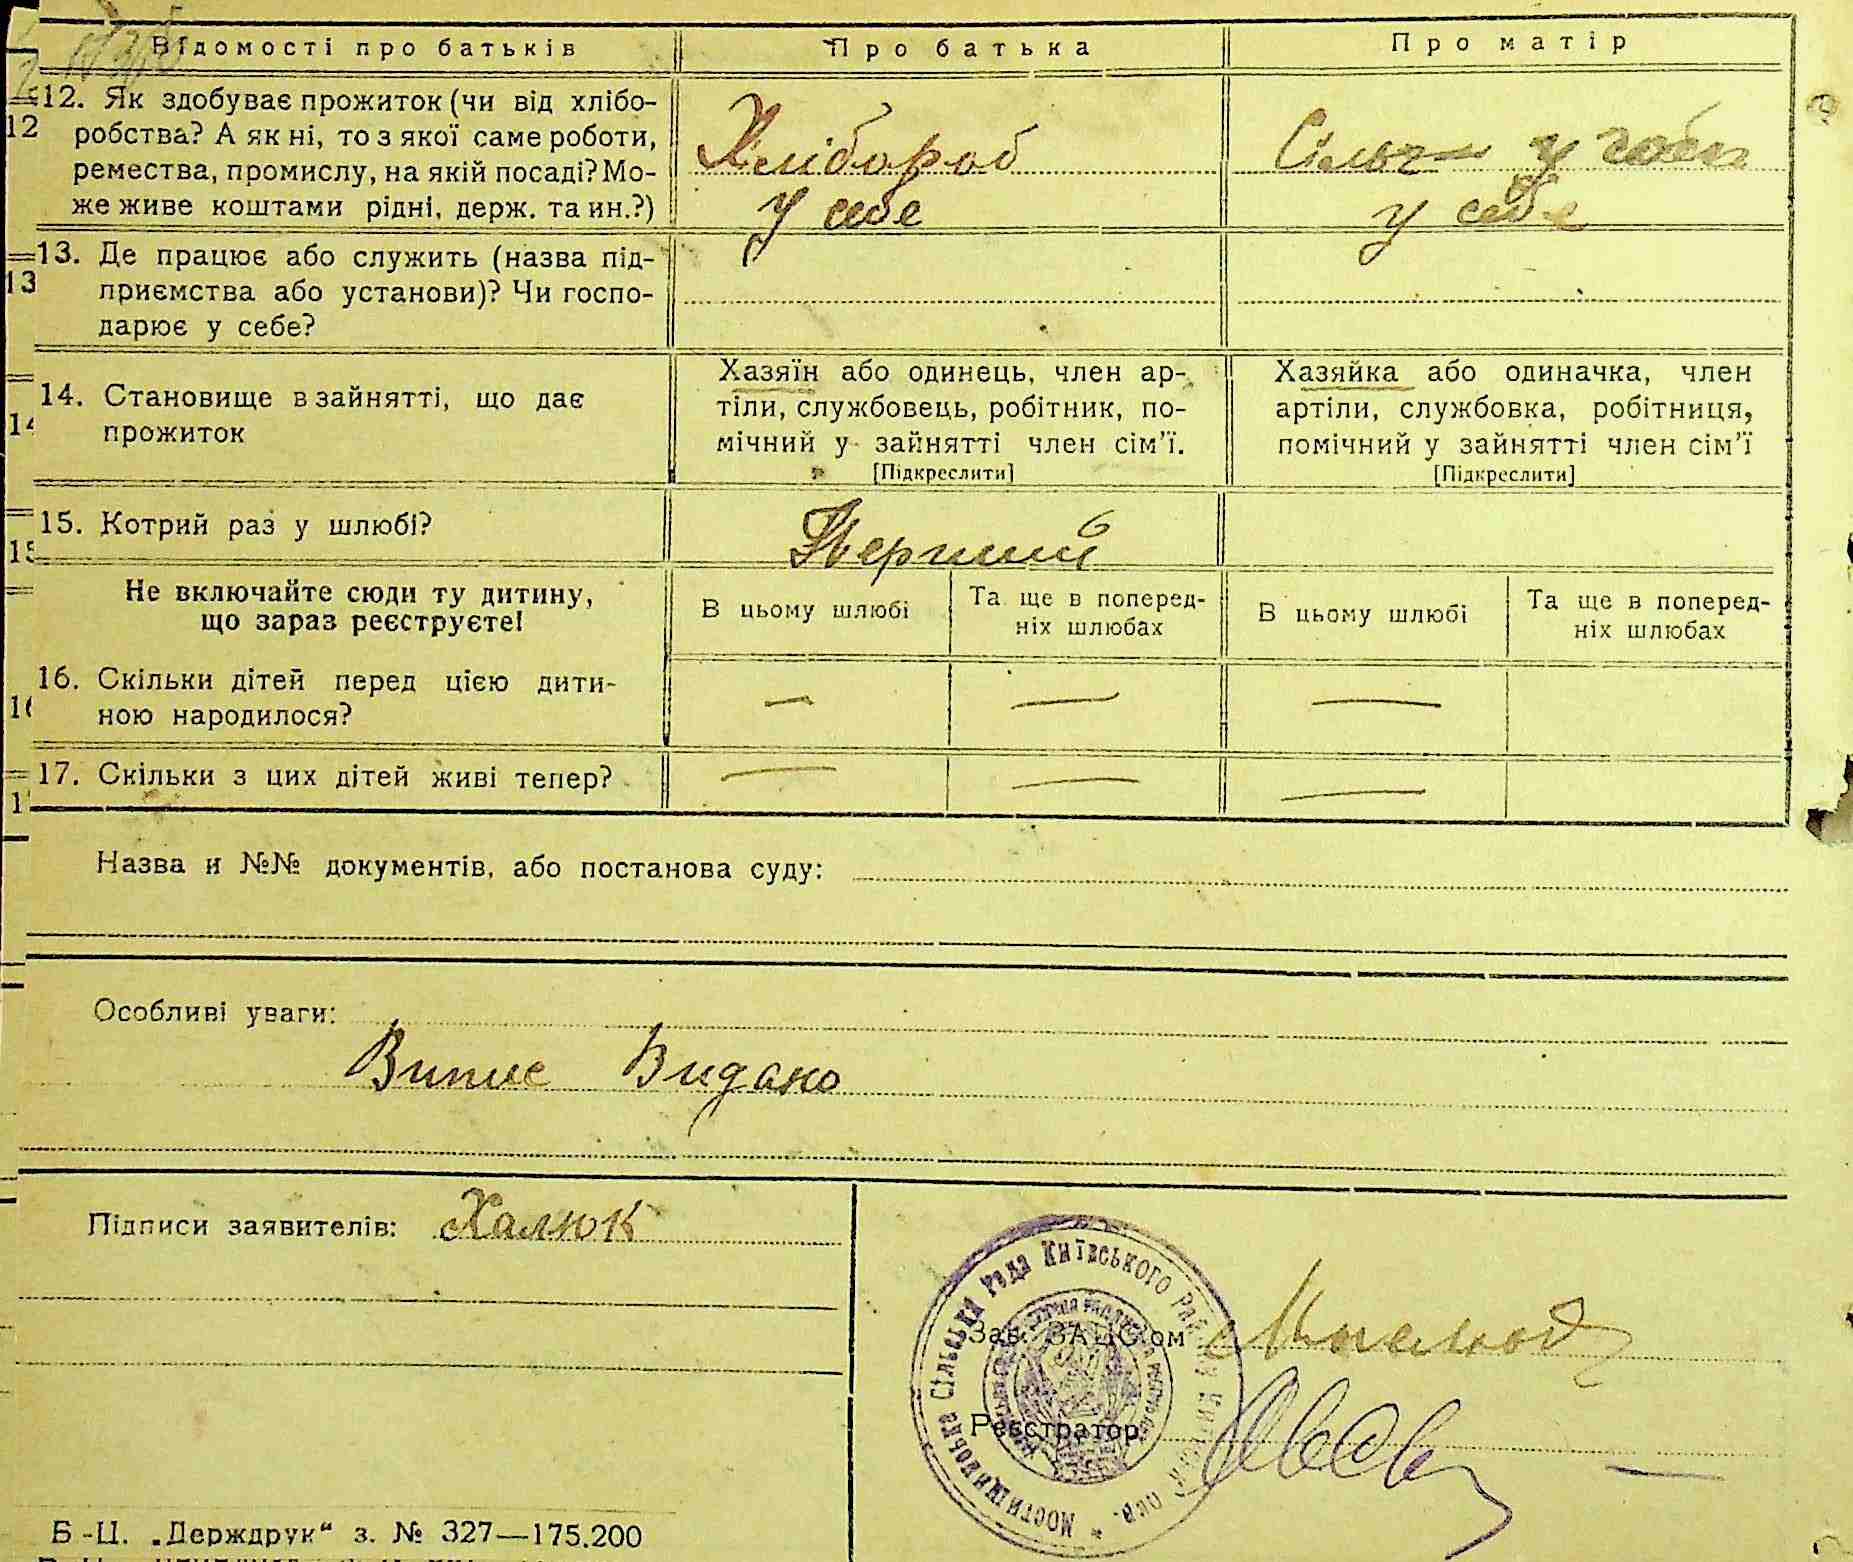 Відомості про батьків
Про батька
Про матір
12. Як здобуває прожиток (чи від хлібо-
робства? А як ні, то з якої саме роботи,
ремества, промислу, на якій посаді? Мо-
же живе коштами рідні, держ. та ин.?)
Хлібороб
у себе
у себе
13. Де працює або служить (назва під-
приємства або установи)? Чи госпо-
дарює у себе?
14. Становище в зайнятті, що дає
прожиток
Хазяїн або одинець, член ар-
тіли, службовець, робітник, по-
мічний у зайнятті член сім'ї.
[Підкреслити]
Хазяйка або одиначка, член
артіли, службовка, робітниця,
помічний у зайнятті член сім'ї
[Підкреслити]
15. Котрий раз у шлюбі?
Перший
Не включайте сюди ту дитину,
що зараз реєструєте!
В цьому шлюбі
Та ще в поперед-
ніх шлюбах
В цьому шлюбі
Та ще в поперед-
ніх шлюбах
16. Скільки дітей перед цією дити-
ною народилося?
— — —
17. Скільки з цих дітей живі тепер?
— — —
Назва и №№ документів, або постанова суду:
Особливі уваги:
Випис Видано
Підписи заявителів: Халюк
Мостищинська Сільська Рада Київського Району
Зав. ЗАЦС'ом
Реєстратор
Б-Ц. „Держдрук“ з. № 327—175.200